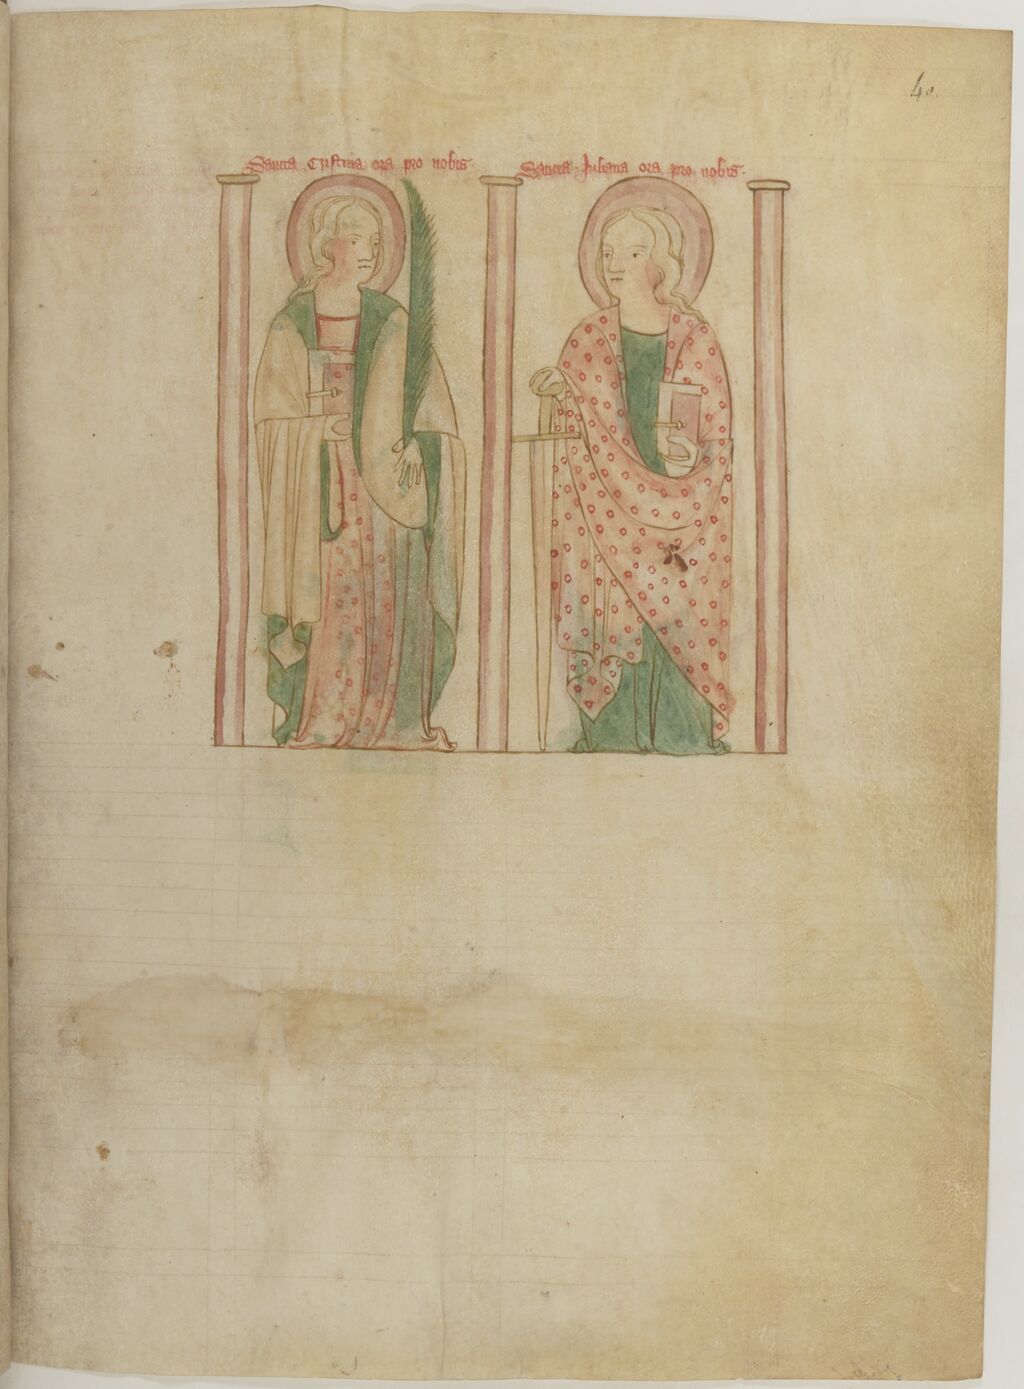 40.
Sancta Cristina ora pro nobis.
Sancta Juliana ora pro nobis.